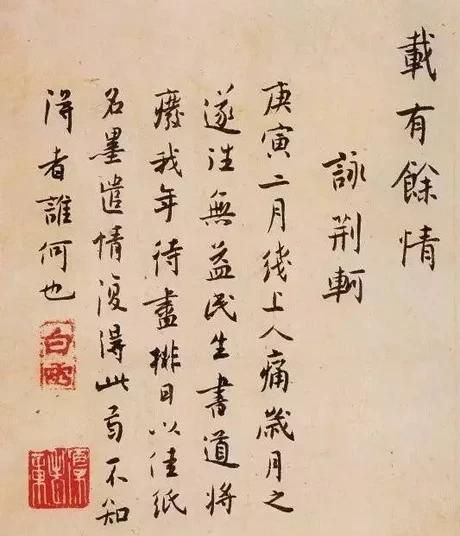 載有餘情
詠荊軻
庚寅二月綫上人痛歲月之
遂往無益民生書道將
癈我年待盡排日以佳紙
名墨遣情復得此首不知
得者誰何也
白雲